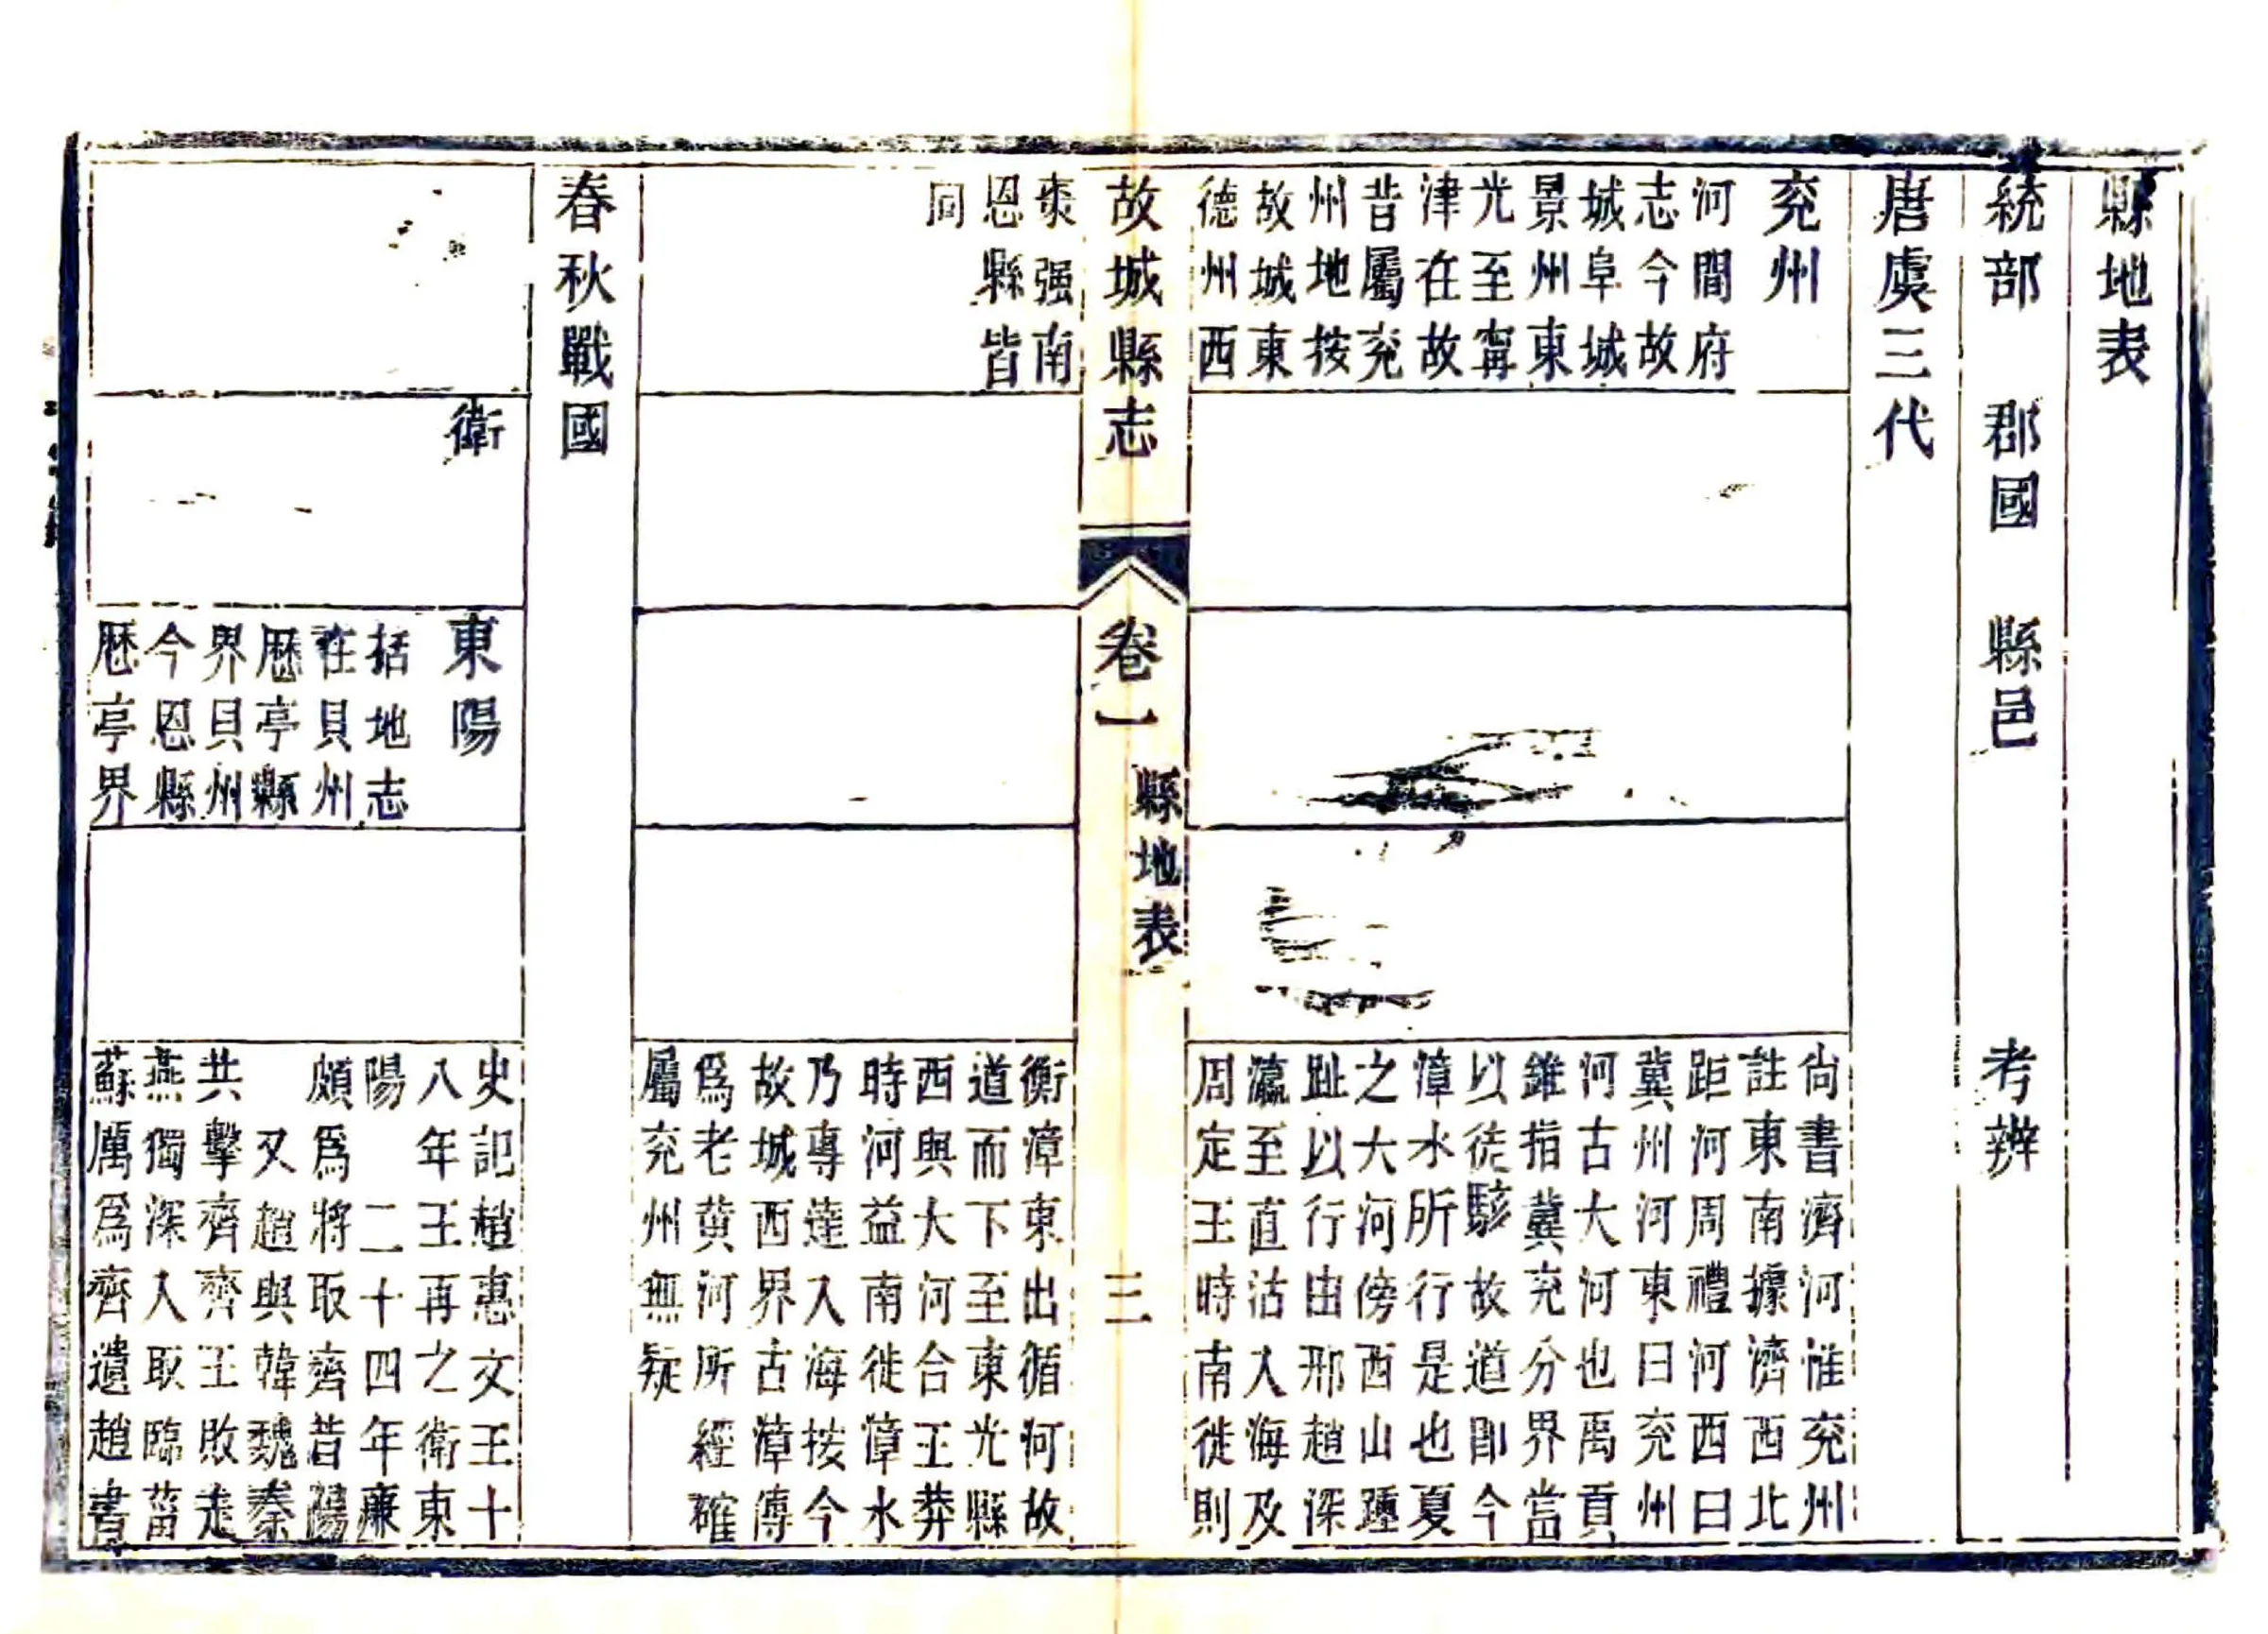 縣地表
統部　郡國　縣邑　考辨
唐虞三代
兖州
河間府
志今故
城阜城
景州東
光至甯
津在故
昔屬兖
州地按
故城東
德州西
尙書濟河惟兖州
註東南據濟西北
距河周禮河西曰
冀州河東曰兖州
河古大河也禹貢
雖指冀兖分界當
以徒駭故道卽今
漳水所行是也夏
之大河傍西山踵
趾以行由邢趙深
瀛至直沽入海及
周定王時南徙則
故城縣志
卷一
縣地表
三
棗强南
恩縣皆
同
衡漳東出循河故
道而下至東光縣
西與大河合王莽
時河益南徙漳水
乃專達入海按今
故城西界古漳傳
爲老黃河所經確
屬兖州無疑
春秋戰國
衛
東陽
括地志
在貝州
歷亭縣
界貝州
今恩縣
歷亭界
史記趙惠文王十
八年王再之衛東
陽　二十四年廉
頗爲將取齊昔陽
又趙與韓魏秦
共擊齊齊王敗走
燕獨深入取臨菑
蘇厲爲齊遺趙書